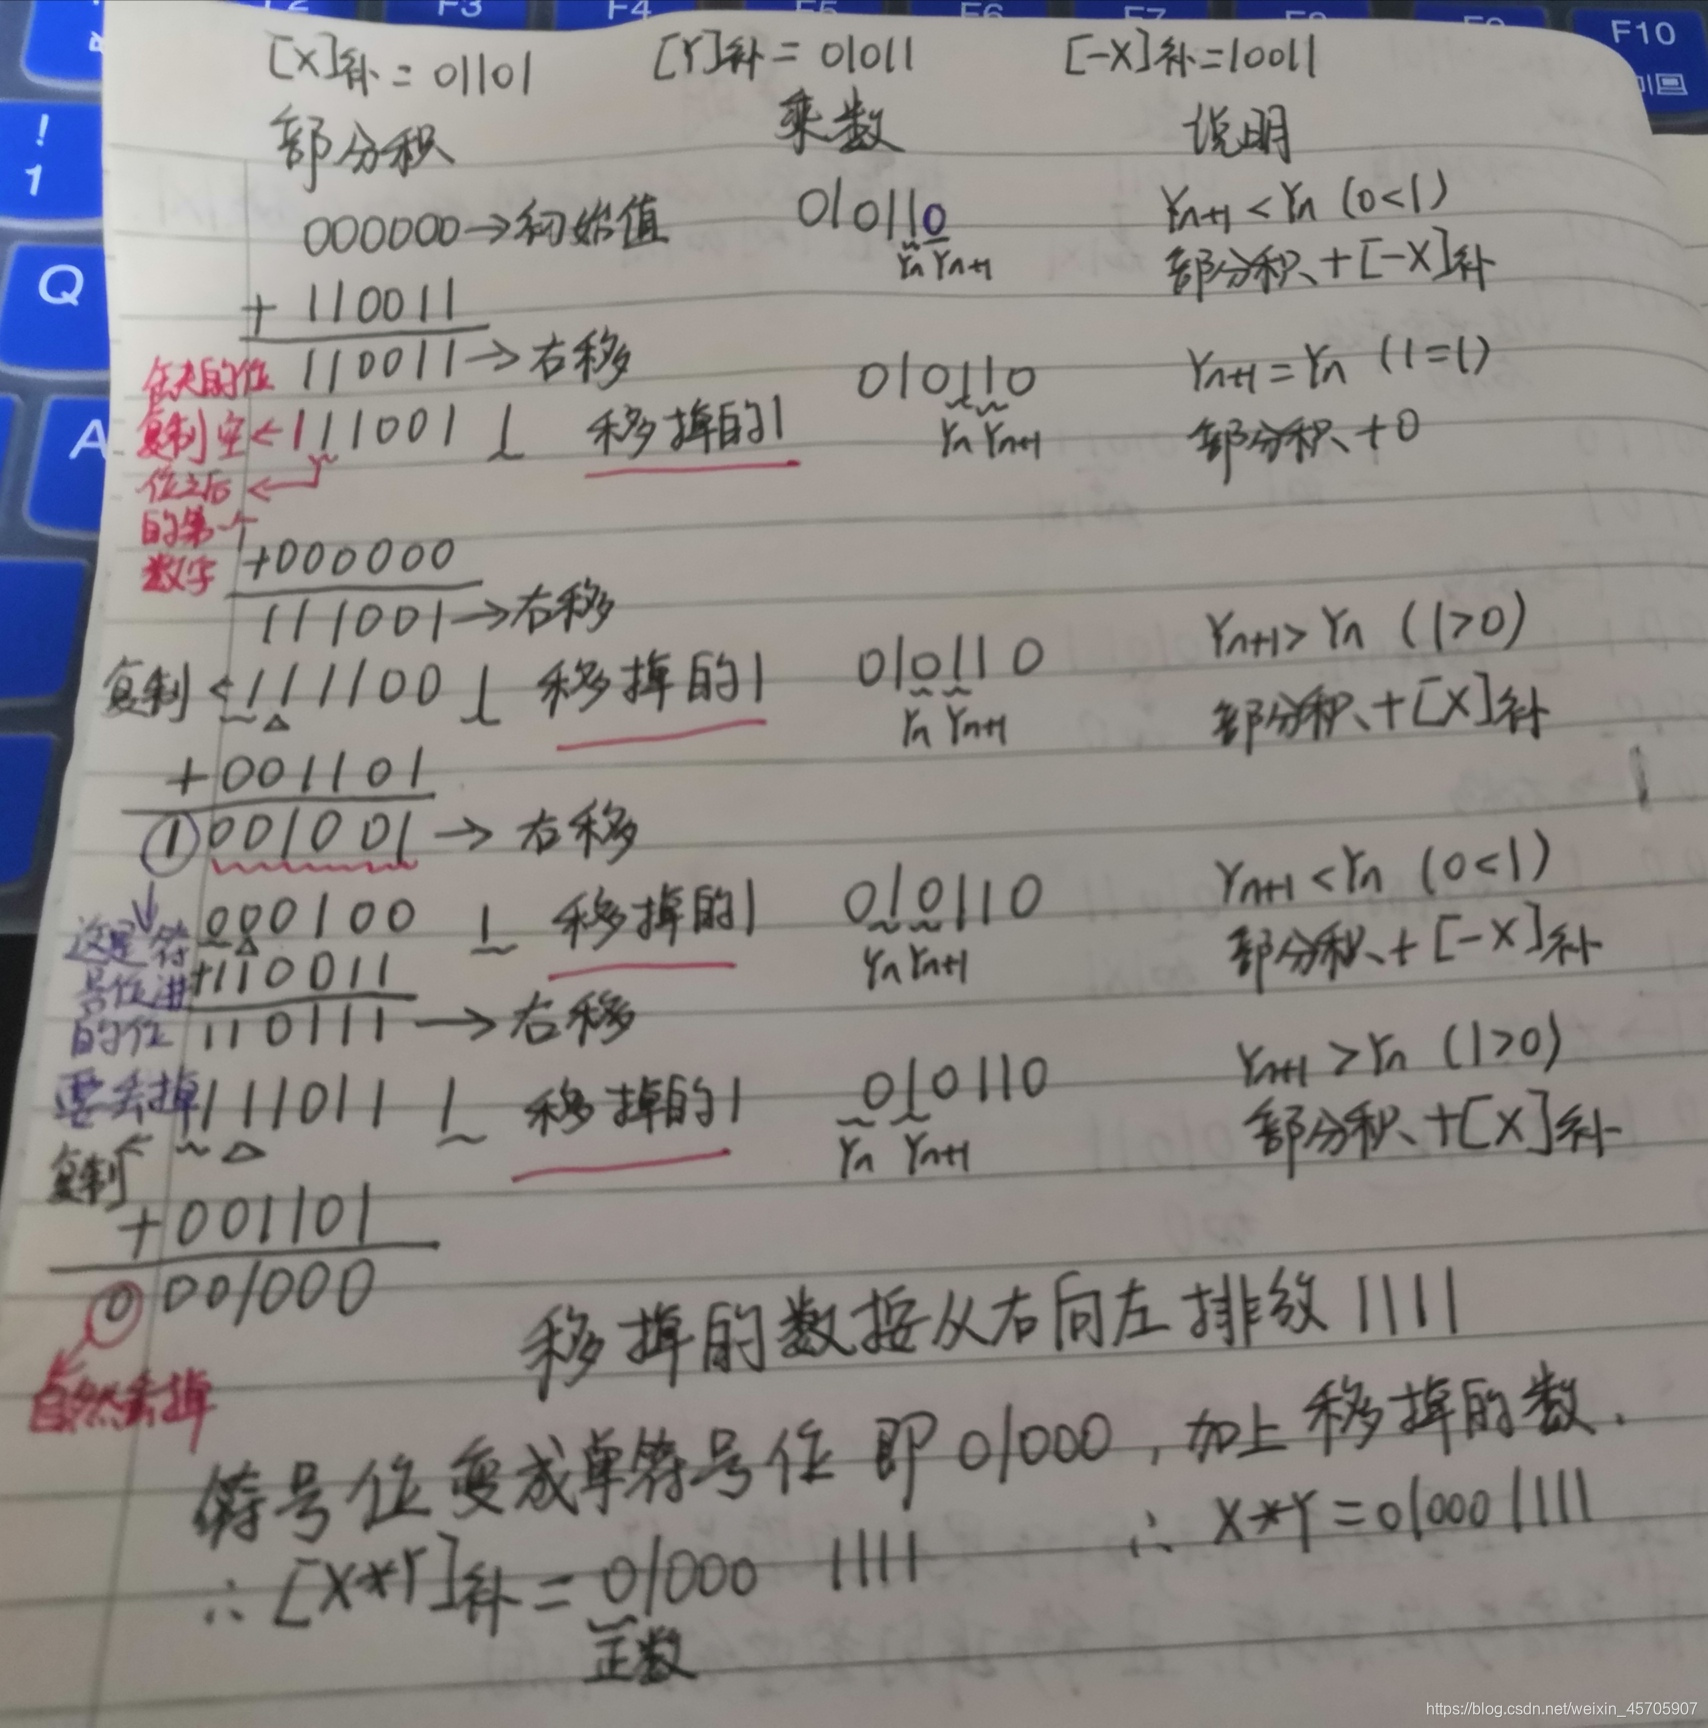 F2 F3 F4 F5 F6 F7 F8 F9 F10
! 1
Q
A
[X]补 = 01101 [Y]补 = 01011 [-X]补=10011
部分积 乘数 说明
000000→初始值 010110 Yn+1 < Yn (0<1)
Yn Yn+1 部分积+[-X]补
+ 110011
110011→右移 010110 Yn+1 = Yn (1=1)
空夫的位
复制空←111001 1 移掉的1 Yn Yn+1 部分积+0
位之后
的第一个
数字
+000000
111001→右移
复制←111100 1 移掉的1 010110 Yn+1 > Yn (1>0)
Yn Yn+1 部分积+[X]补
+001101
①001001→右移
000100 1 移掉的1 010110 Yn+1 < Yn (0<1)
这是符
号位进
的位
要丢掉
+110011 Yn Yn+1 部分积+[-X]补
110111→右移
111011 1 移掉的1 010110 Yn+1 > Yn (1>0)
复制 Yn Yn+1 部分积+[X]补
+001101
0 001000
自然丢掉
移掉的数按从右向左排统 1111
符号位变成单符号位 即 01000, 加上移掉的数.
∴ [X*Y]补 = 01000 1111 ∴ X*Y = 01000 1111
正数
https://blog.csdn.net/weixin_45705907